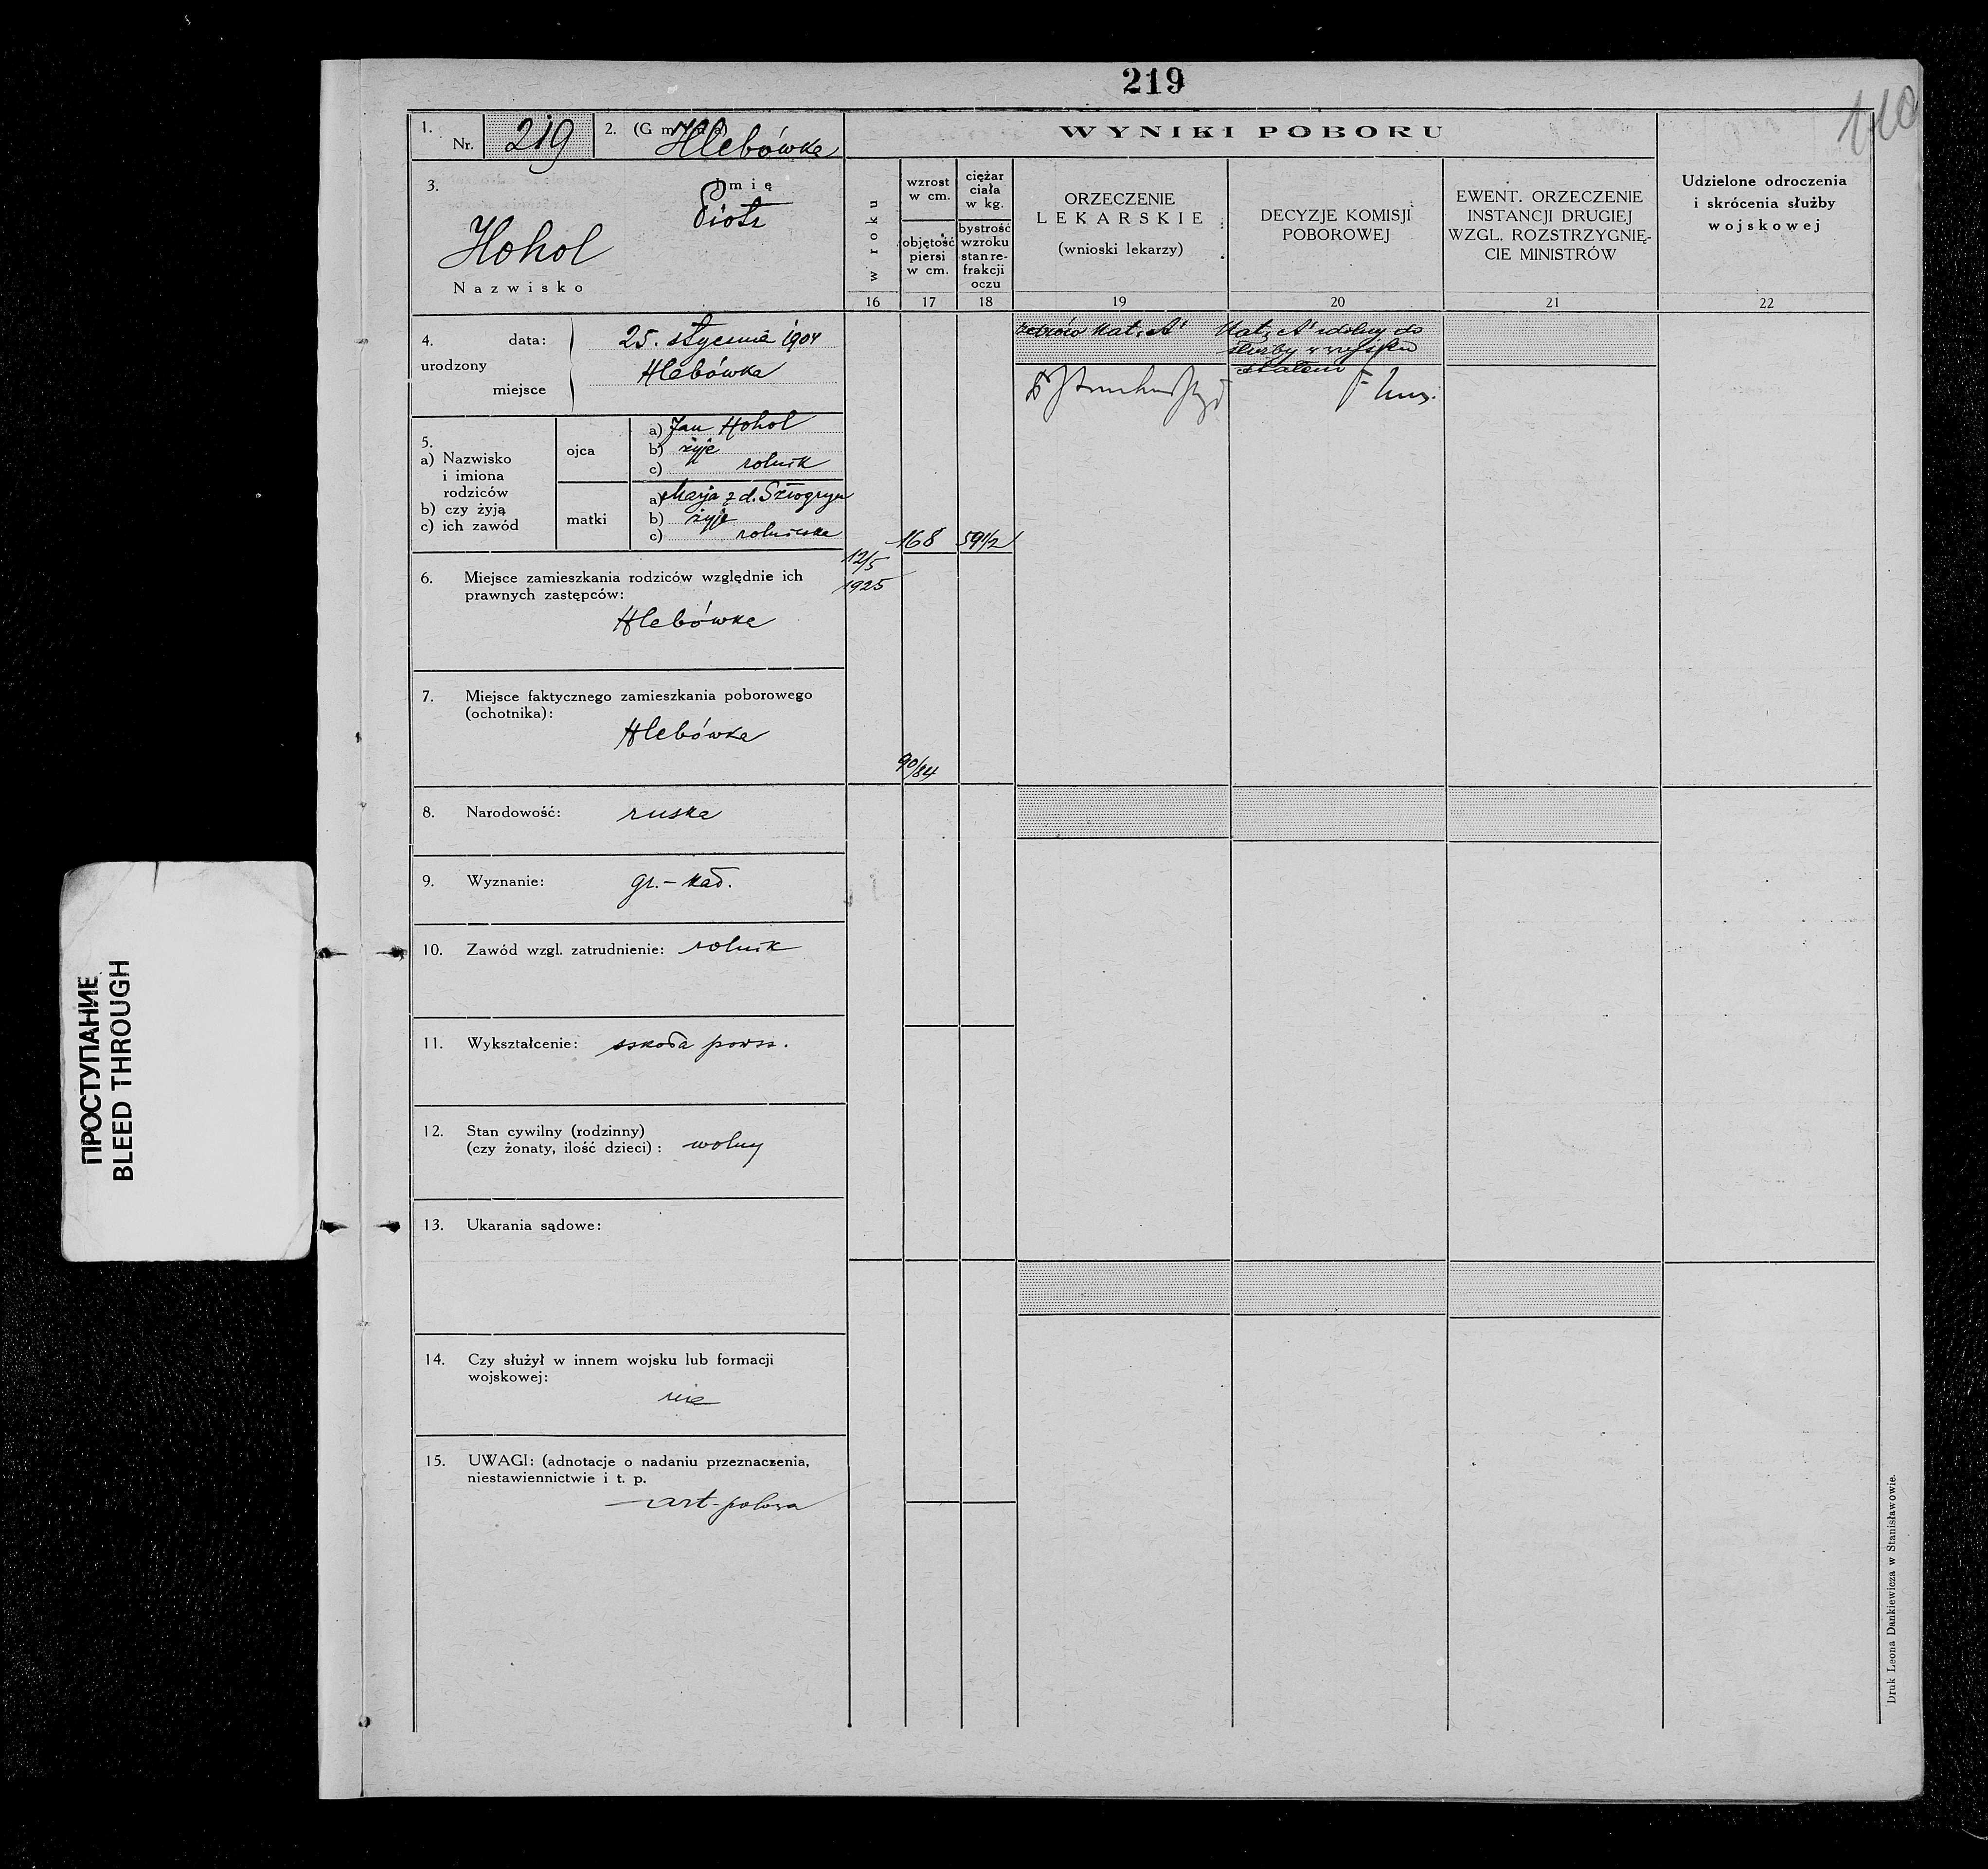 219
110
1.
Nr. 219
2. (Gmina) Hlebówka
3.
Imię
Piotr
Hohol
Nazwisko
4.
urodzony
data: 25. stycznia 1904
miejsce Hlebówka
5.
a) Nazwisko
i imiona
rodziców
b) czy żyją
c) ich zawód
ojca
a) Jan Hohol
b) żyje
c) rolnik
matki
a) Marja z d.
b) żyje
c) rolniczka
6. Miejsce zamieszkania rodziców względnie ich
prawnych zastępców:
Hlebówka
7. Miejsce faktycznego zamieszkania poborowego
(ochotnika):
Hlebówka
8. Narodowość: ruska
9. Wyznanie: gr.-kat.
10. Zawód wzgl. zatrudnienie: rolnik
11. Wykształcenie: szkoła powsz.
12. Stan cywilny (rodzinny)
(czy żonaty, ilość dzieci): wolny
13. Ukarania sądowe:
14. Czy służył w innem wojsku lub formacji
wojskowej:
nie
15. UWAGI: (adnotacje o nadaniu przeznaczenia,
niestawiennictwie i t. p.
art-polowa
WYNIKI POBORU
w roku
16
wzrost
w cm.
objętość
piersi
w cm.
17
ciężar
ciała
w kg.
bystrość
wzroku
stan re-
frakcji
oczu
18
ORZECZENIE
LEKARSKIE
(wnioski lekarzy)
19
DECYZJE KOMISJI
POBOROWEJ
20
EWENT. ORZECZENIE
INSTANCJI DRUGIEJ
WZGL. ROZSTRZYGNIĘ-
CIE MINISTRÓW
21
Udzielone odroczenia
i skrócenia służby
wojskowej
22
12/5
1925
168
59 1/2
90/84
zdrów Kat. A'
Kat. A' zdolny do
służby w wojsku
stałem
Druk Leona Dankiewicza w Stanisławowie.
ПРОСТУПАНИЕ
BLEED THROUGH